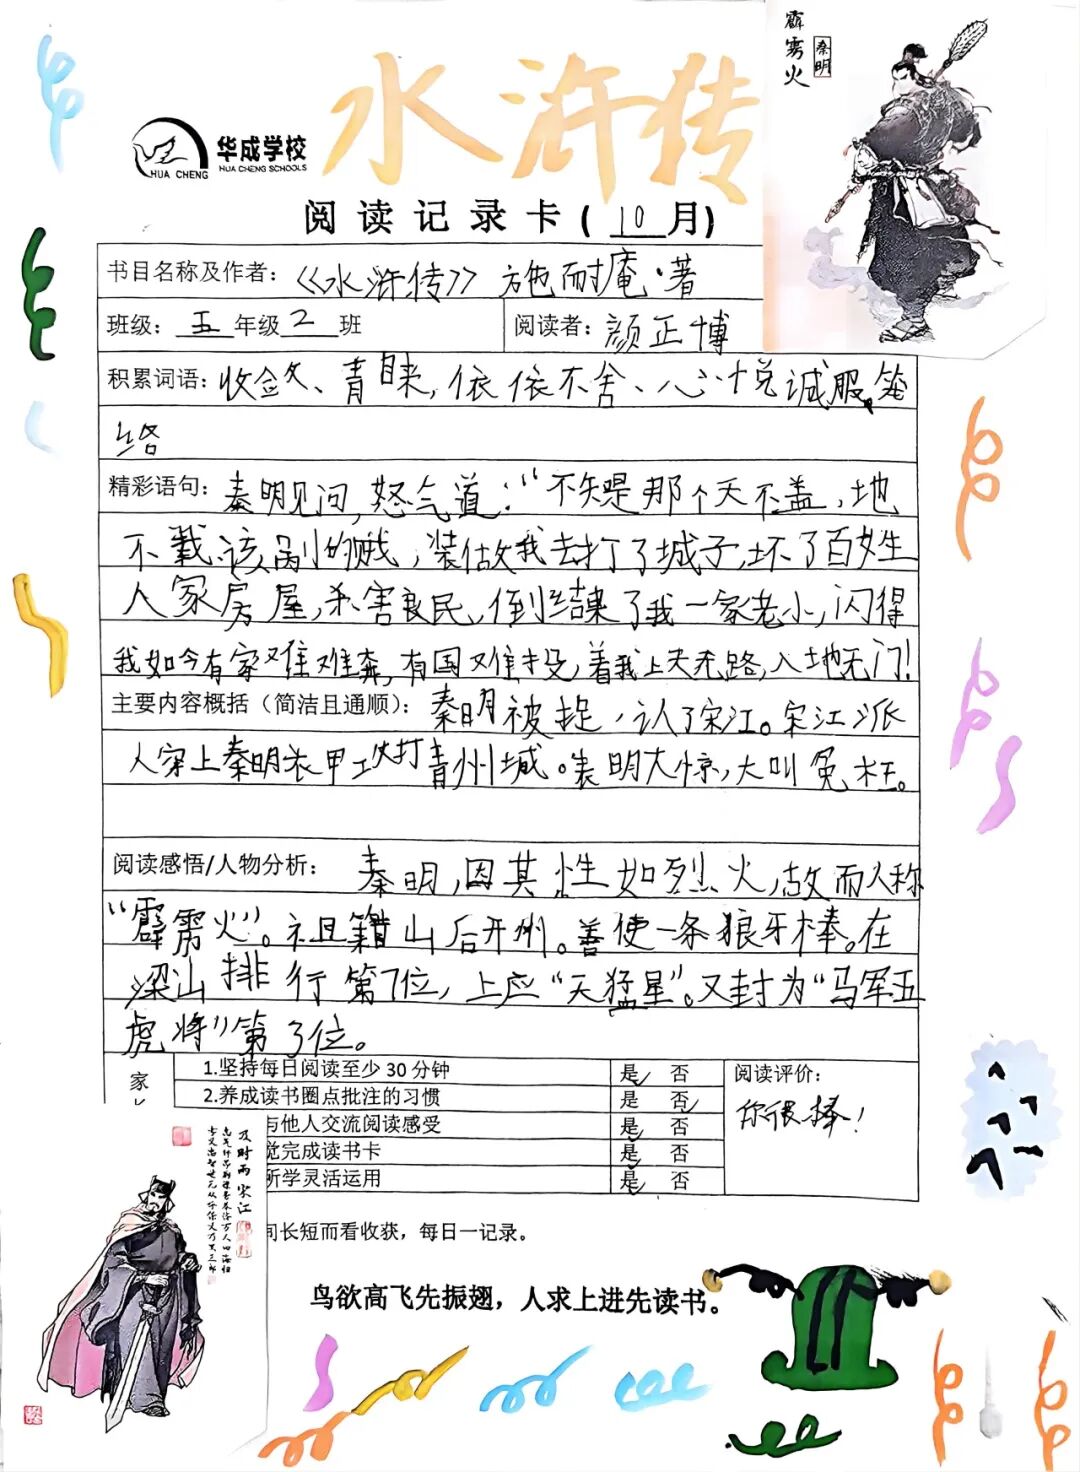 水浒传
霹雳火
秦明
华成学校
HUA CHENG
HUA CHENG SCHOOLS
阅读记录卡(10月)
书目名称及作者:《水浒传》施耐庵·著
班级:五年级2班 阅读者:颜正博
积累词语:收敛、青睐,依依不舍、心悦诚服,笼
络
精彩语句:秦明见问,怒气道:“不知是那个天不盖,地
不载,该剐的贼,装做我去打了城子,坏了百姓
人家房屋,杀害良民,倒结果了我一家老小,闪得
我如今有家难难奔,有国难投,着我上天无路,入地无门!
主要内容概括(简洁且通顺):秦明被捉,认了宋江。宋江派
人穿上秦明衣甲攻打青州城。秦明大惊,大叫冤枉。
阅读感悟/人物分析:秦明,因其性如烈火,故而人称
“霹雳火”。祖籍山后开州。善使一条狼牙棒。在
梁山排行第7位,上应“天猛星”。又封为“马军五
虎将”第3位。
家
1.坚持每日阅读至少30分钟 是 否
2.养成读书圈点批注的习惯 是 否
与他人交流阅读感受 是 否
觉完成读书卡 是 否
所学灵活运用 是 否
阅读评价:
你很棒!
间长短而看收获,每日一记录。
鸟欲高飞先振翅,人求上进先读书。
及时雨宋江